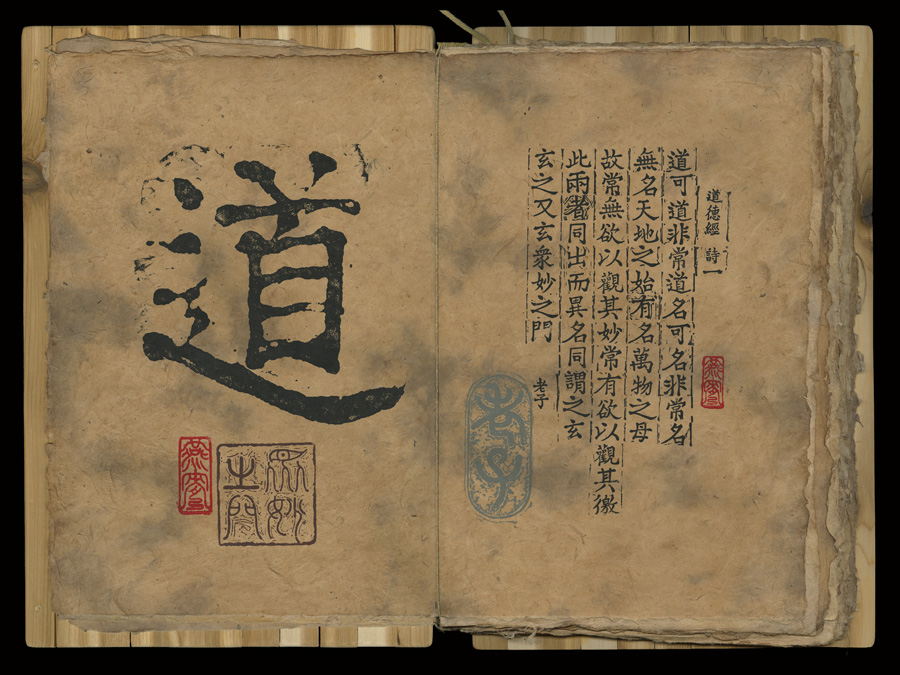 道
眾妙
之門
道德經 詩一
道可道非常道名可名非常名
無名天地之始有名萬物之母
故常無欲以觀其妙常有欲以觀其徼
此兩者同出而異名同謂之玄
玄之又玄衆妙之門
老子
老子